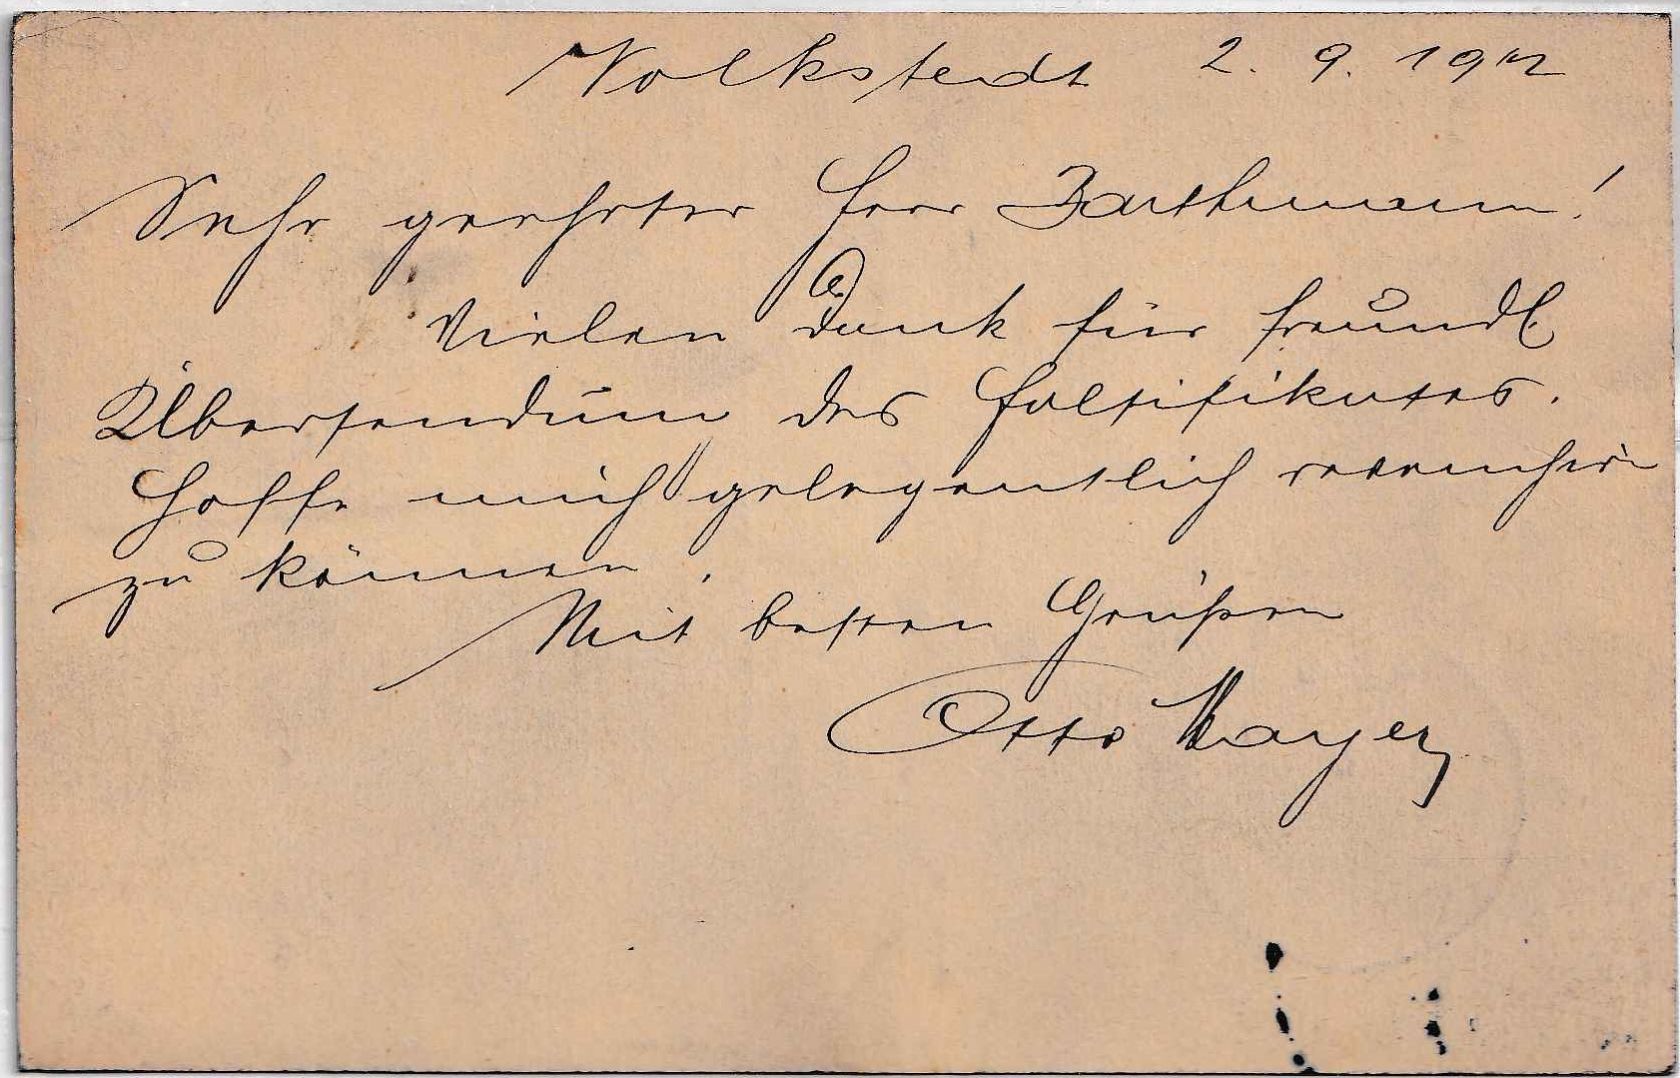 Volkstedt 2. 9. 1912
Sehr geehrter Herr Barthmann!
Vielen Dank für freundl.
Übersendung des Falsifikates.
Hoffe mich gelegentlich revanchieren
zu können.
Mit besten Grüßen
Otto Mayer